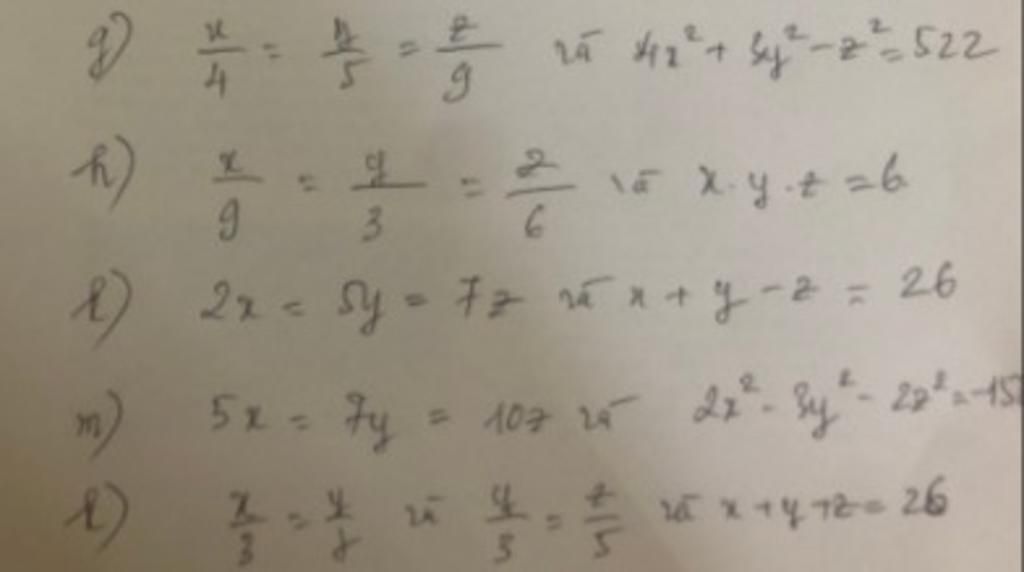 g) x/4 = y/5 = z/9 và 4x² + 3y² - z² = 522
h) x/9 = y/3 = z/6 và x.y.z = 6
l) 2x = 5y = 7z và x + y - z = 26
m) 5x = 7y = 10z và 2x² - 3y² - 2z² = -15
l) x/3 = y/ và y/3 = z/5 và x + y + z = 26